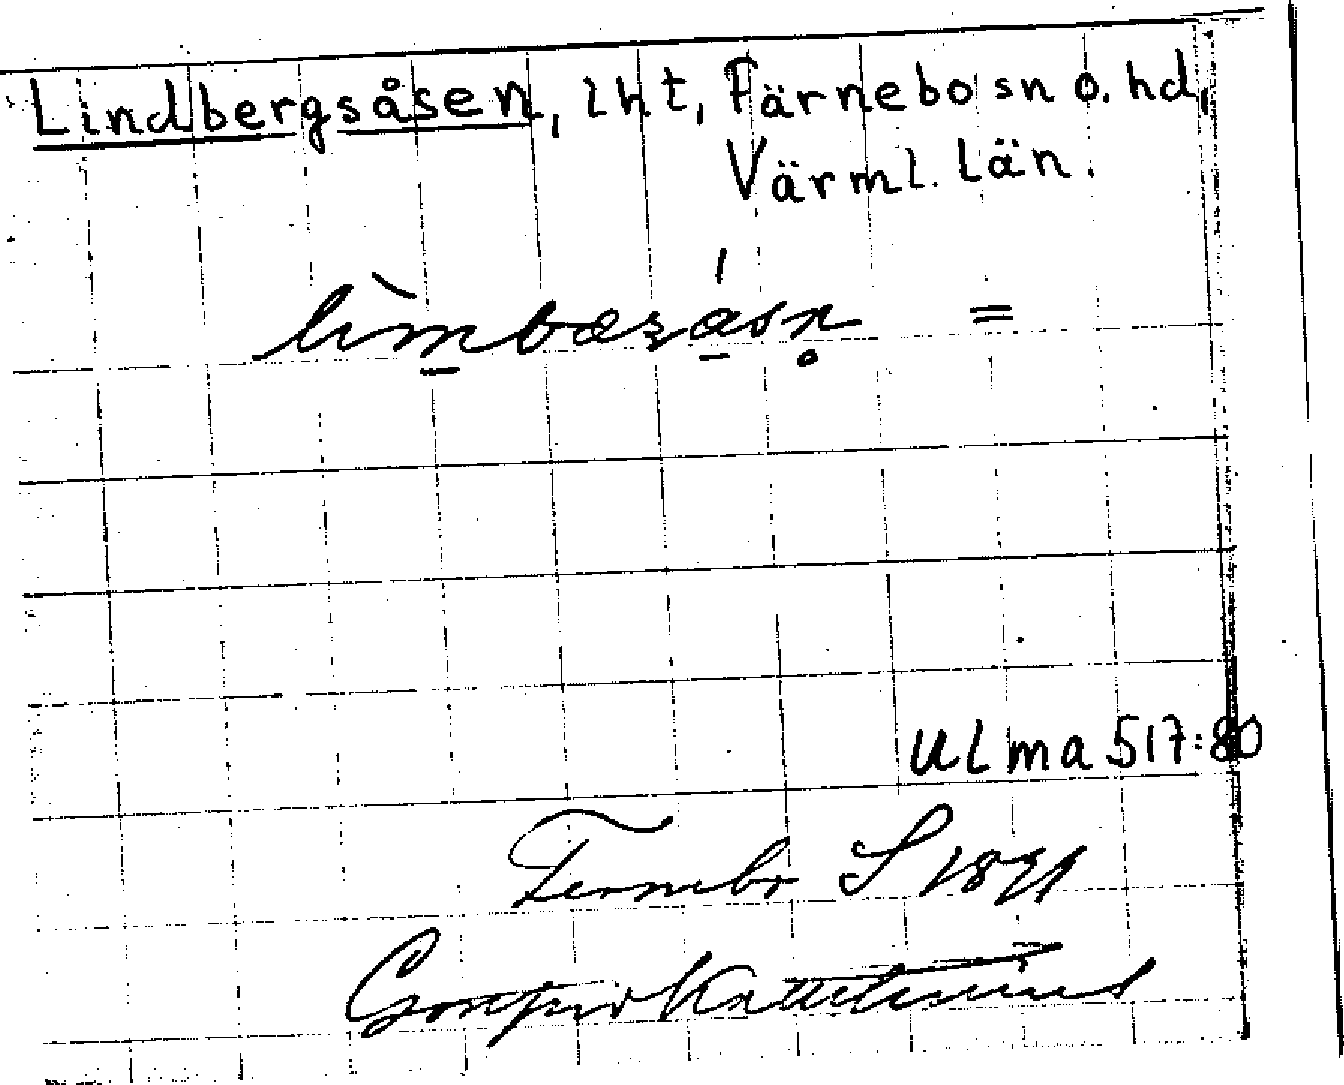 Lindbergsåsen, lht, Färnebo sn o. hd,
Värml. län.
lìmbærásn̥ =
ULma 517:80
Fernebo S 1891
Gottfrid Kallstenius